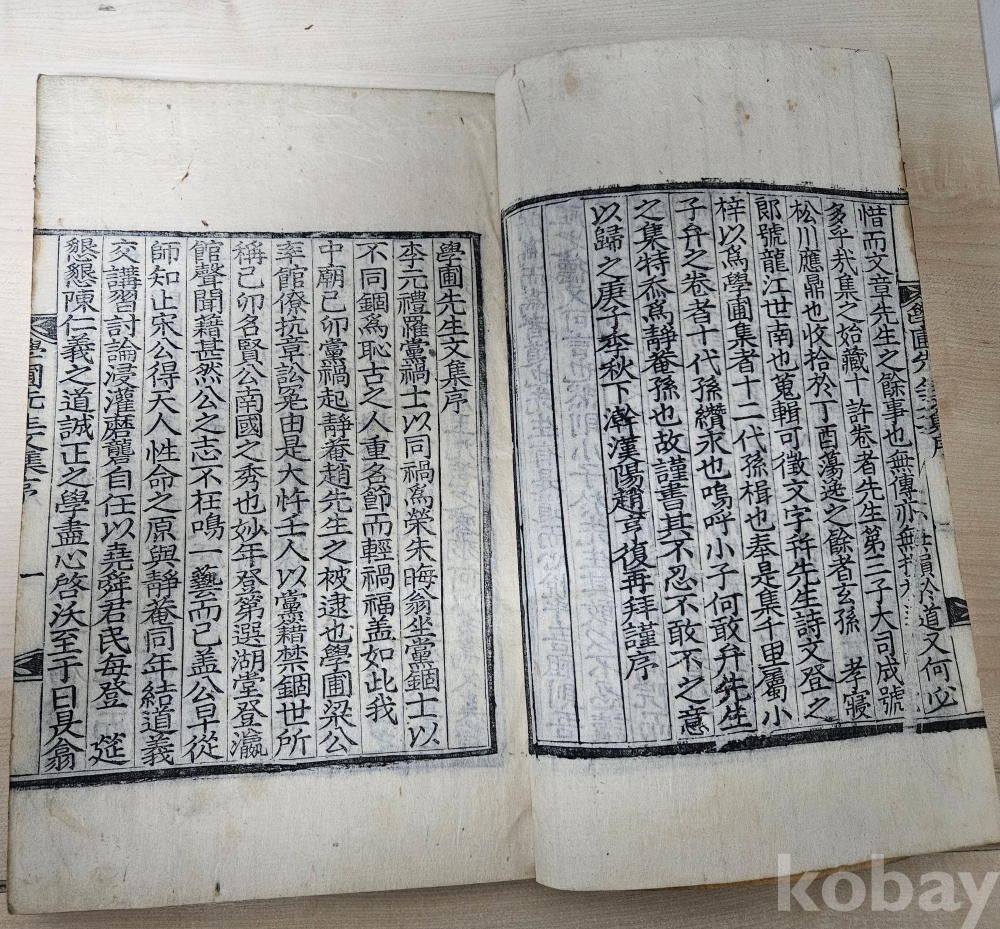 於道又何必
惜而文章先生之餘事也無傳亦無
多乎哉集之始藏十許卷者先生第三子大司成號
松川應鼎也收拾於丁酉蕩逸之餘者玄孫 孝寢
郞號龍江世南也蒐輯可徵文字幷先生詩文登之
梓以爲學圃集者十二代孫楫也奉是集千里屬小
子弁之卷者十代孫纘永也嗚呼小子何敢弁先生
之集特忝爲靜菴孫也故謹書其不忍不敢不之意
以歸之庚子季秋下澣漢陽趙亨復再拜謹序
學圃先生文集序
李元禮罹黨禍士以同禍爲榮朱晦翁坐黨錮士以
不同錮爲恥古之人重名節而輕禍福盖如此我
中廟己卯黨禍起靜菴趙先生之被逮也學圃梁公
率館僚抗章訟寃由是大忤壬人以黨籍禁錮世所
稱己卯名賢公南國之秀也妙年登第選湖堂登瀛
館聲聞藉甚然公之志不在鳴一藝而已盖公早從
師知止宋公得天人性命之原與靜菴同年結道義
交講習討論浸灌磨礱自任以堯舜君民每登 筵
懇懇陳仁義之道誠正之學盡心啓沃至于日昃翁
學圃先生文集序 一
kobay